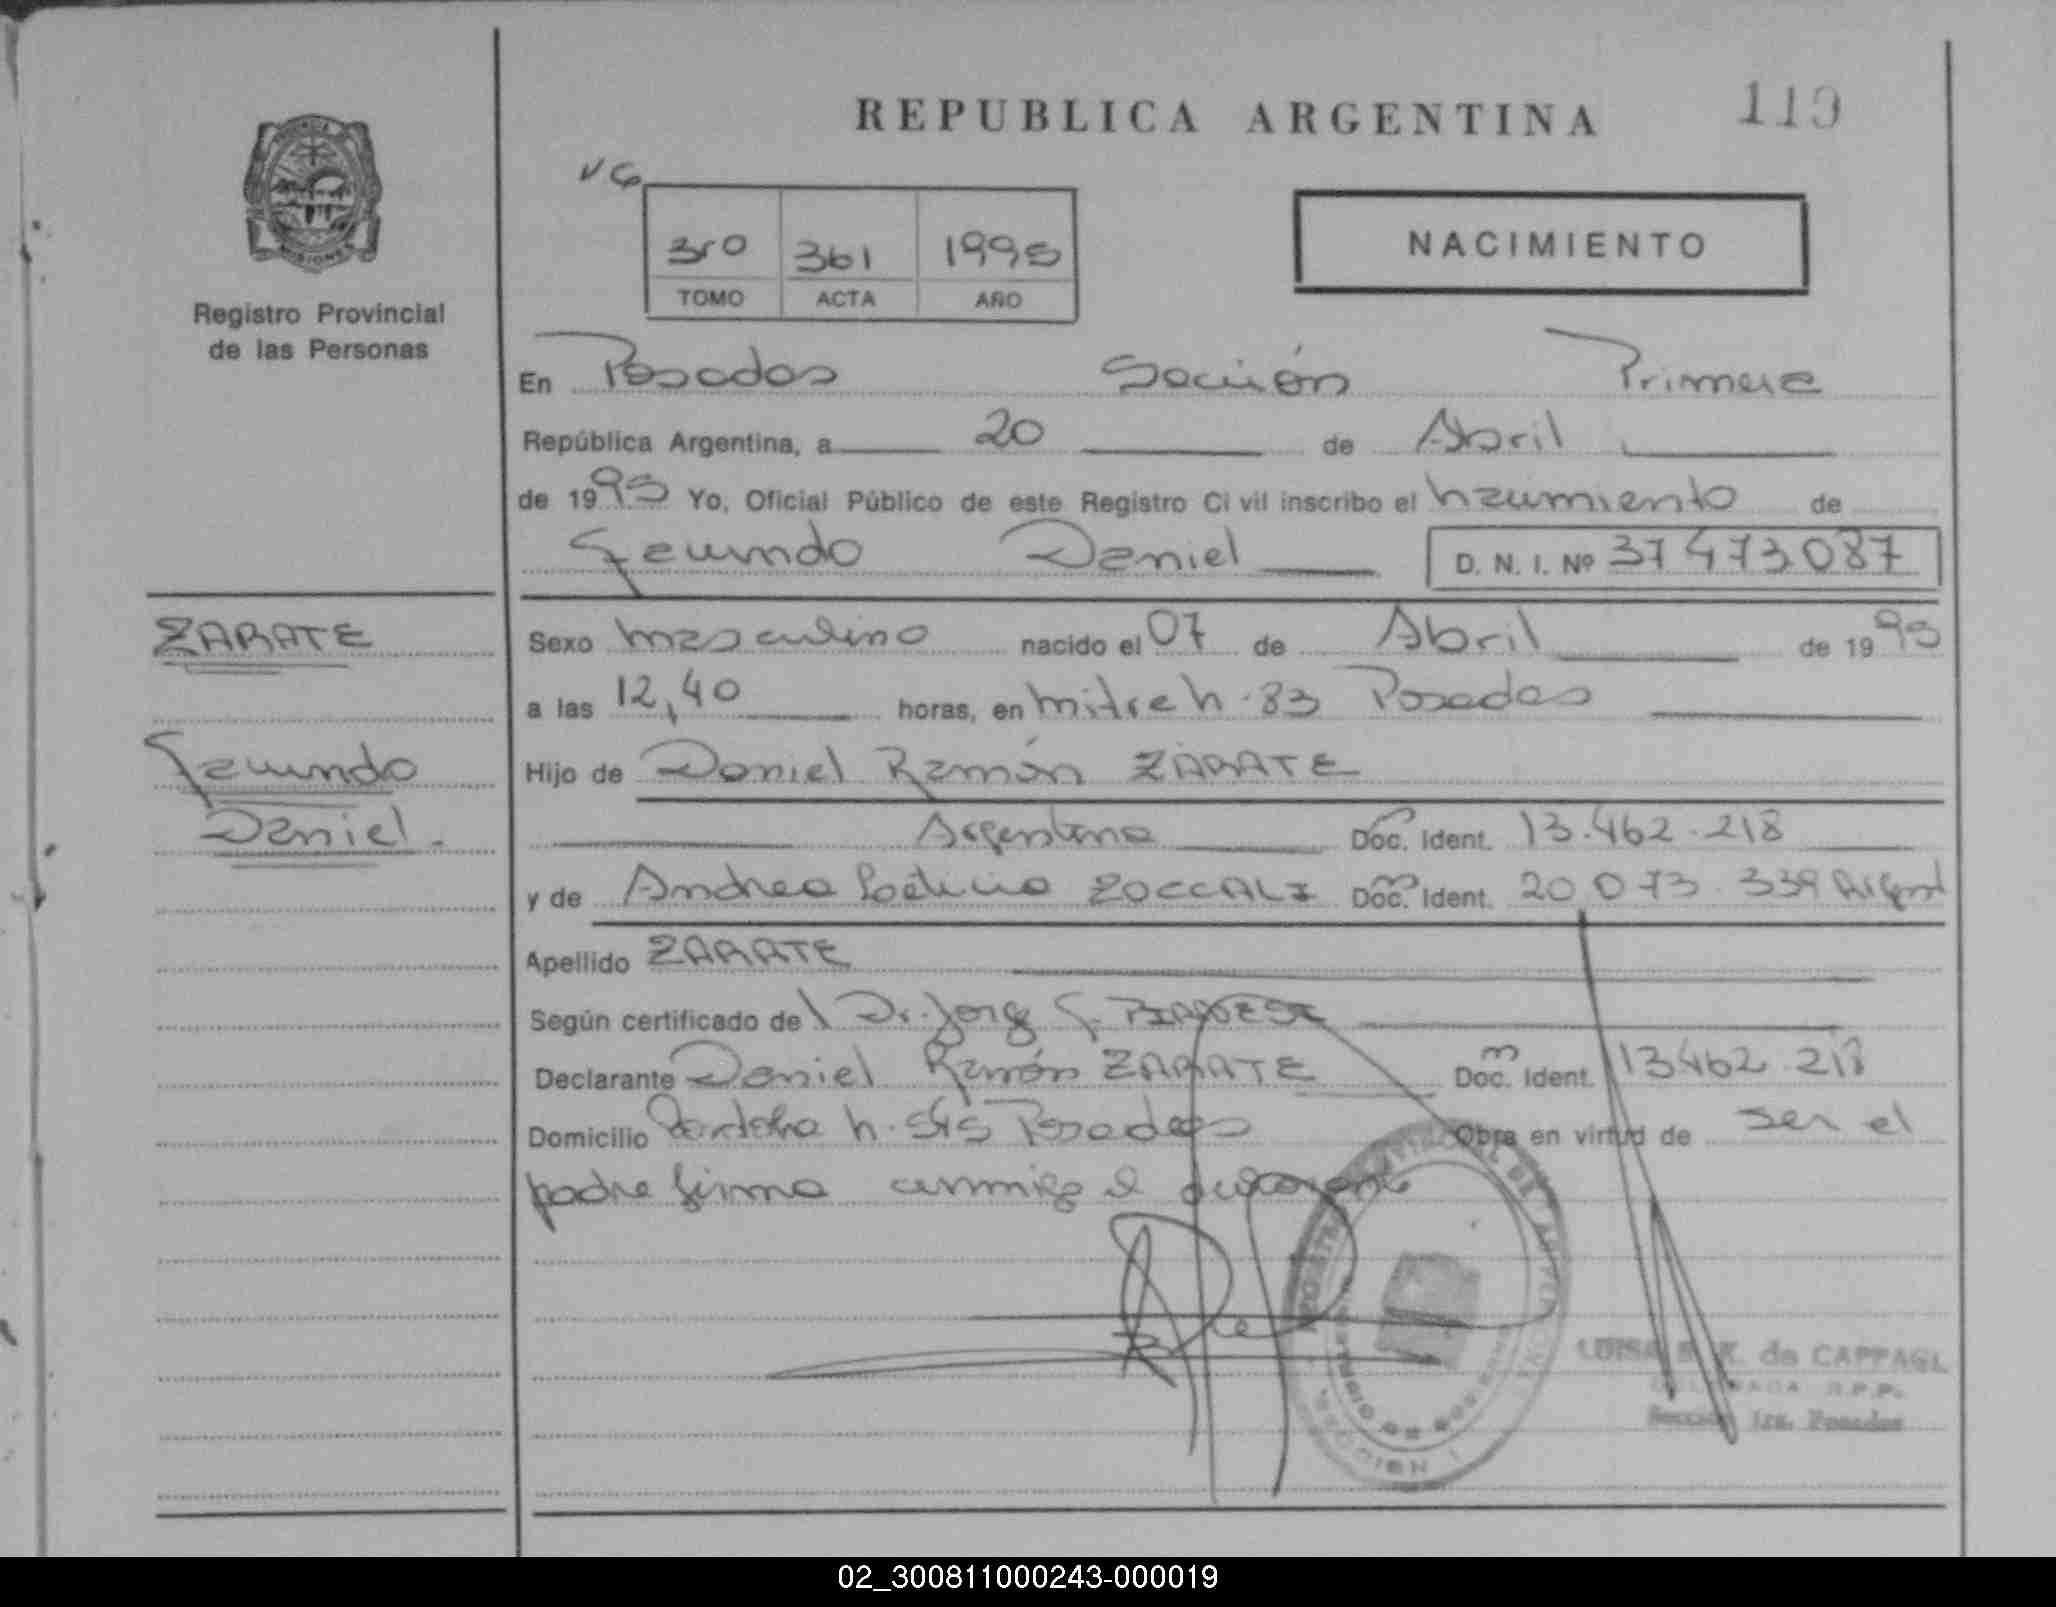 REPUBLICA ARGENTINA 119
3ro 361 1995
TOMO ACTA AÑO
NACIMIENTO
Registro Provincial
de las Personas
En Posadas Sección Primera
República Argentina, a 20 de Abril
de 1995 Yo, Oficial Público de este Registro Civil inscribo el nacimiento de
Facundo Daniel D. N. I. Nº 37473087
ZARATE
Facundo
Daniel.
Sexo masculino nacido el 07 de Abril de 1995
a las 12,40 horas, en mitre n. 83 Posadas
Hijo de Daniel Ramón ZARATE
Argentino Doc. Ident. 13.462.218
y de Andrea ZOCCALI Doc. Ident. 20.073.339 Argent
Apellido ZARATE
Según certificado del Dr. Jorge
Declarante Daniel Ramón ZARATE Doc. Ident. 13462.218
Domicilio n. Posadas Obra en virtud de ser el
padre firma conmigo el declarante
LUISA de CAPPAGL
R.P.P.
Sección 1ra. Posadas
02_300811000243-000019